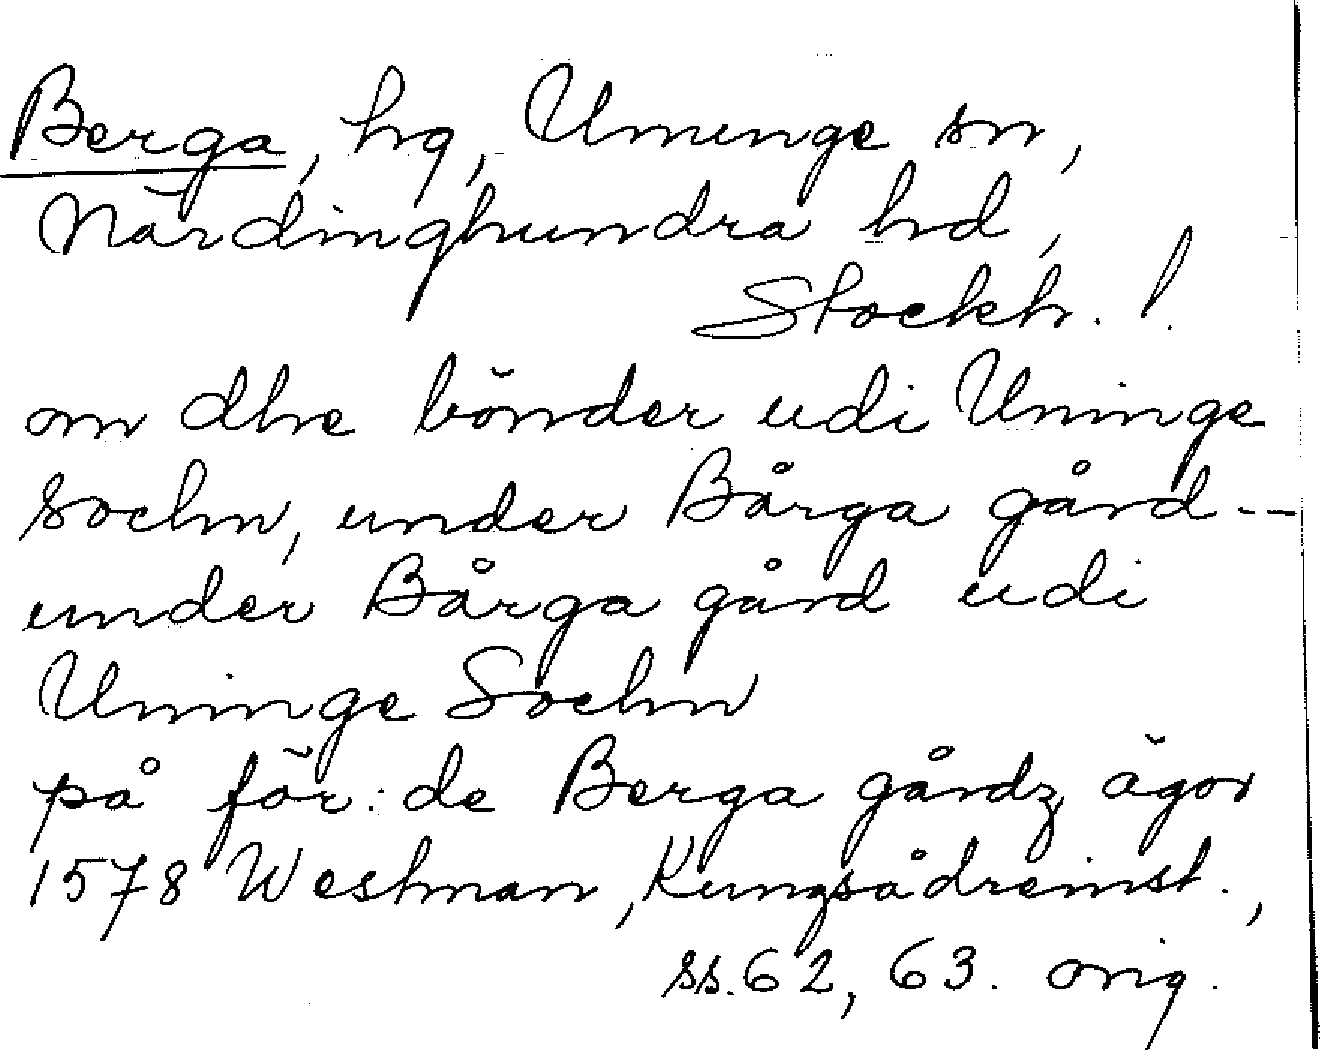 Berga, hg, Ununge sn,
Närdinghundra hd,
Stockh. l.
om dhe bönder udi Uninge
sochn, under Bårga gård --
under Bårga gård udi
Uninge Sochn
på för: de Berga gårdz ägor
1578 Westman, Kungsådreinst.,
ss. 62, 63. orig.